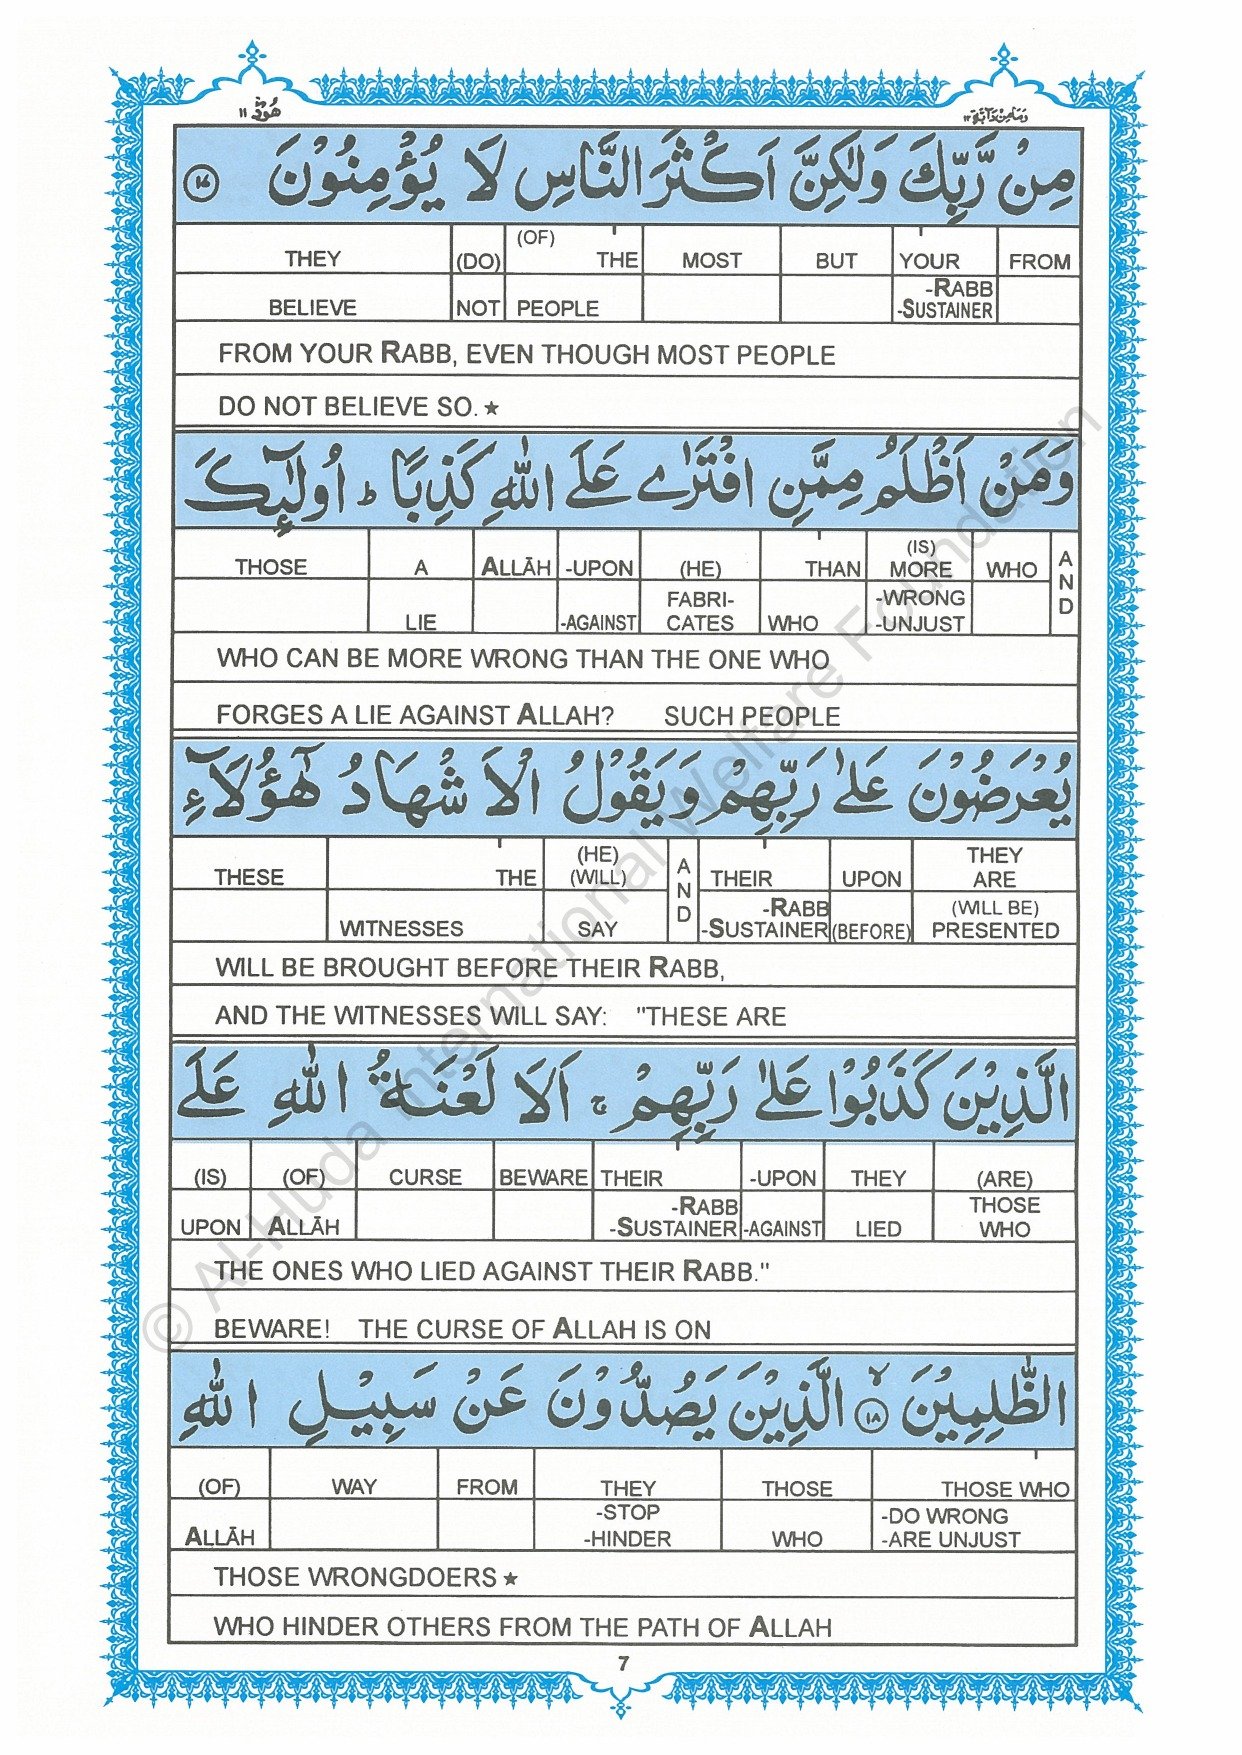 هُوْد ١١
وَمَا مِنْ دَآبَّة ١٢
مِنْ رَّبِّكَ وَلٰكِنَّ اَكْثَرَ النَّاسِ لَا يُؤْمِنُوْنَ ١٧
THEY (DO) (OF) THE MOST BUT YOUR FROM
BELIEVE NOT PEOPLE -RABB -SUSTAINER
FROM YOUR RABB, EVEN THOUGH MOST PEOPLE
DO NOT BELIEVE SO. ★
وَمَنْ اَظْلَمُ مِمَّنِ افْتَرٰے عَلَے اللّٰهِ كَذِبًا ؕ اُولٰٓئِكَ
THOSE A ALLĀH -UPON (HE) THAN (IS) MORE WHO AND
LIE -AGAINST FABRI-CATES WHO -WRONG -UNJUST
WHO CAN BE MORE WRONG THAN THE ONE WHO
FORGES A LIE AGAINST ALLAH? SUCH PEOPLE
يُعْرَضُوْنَ عَلٰے رَبِّهِمْ وَيَقُوْلُ الْاَشْهَادُ هٰٓؤُلَآءِ
THESE THE (HE) (WILL) AND THEIR UPON THEY ARE
WITNESSES SAY -RABB -SUSTAINER (BEFORE) (WILL BE) PRESENTED
WILL BE BROUGHT BEFORE THEIR RABB,
AND THE WITNESSES WILL SAY: "THESE ARE
الَّذِيْنَ كَذَبُوْا عَلٰے رَبِّهِمْ ۚ اَلَا لَعْنَةُ اللّٰهِ عَلَے
(IS) (OF) CURSE BEWARE THEIR -UPON THEY (ARE)
UPON ALLĀH -RABB -SUSTAINER -AGAINST LIED THOSE WHO
THE ONES WHO LIED AGAINST THEIR RABB."
BEWARE! THE CURSE OF ALLAH IS ON
الظّٰلِمِيْنَ ١٨ الَّذِيْنَ يَصُدُّوْنَ عَنْ سَبِيْلِ اللّٰهِ
(OF) WAY FROM THEY THOSE THOSE WHO
ALLĀH -STOP -HINDER WHO -DO WRONG -ARE UNJUST
THOSE WRONGDOERS ★
WHO HINDER OTHERS FROM THE PATH OF ALLAH
7
© Al-Huda International Welfare Foundation